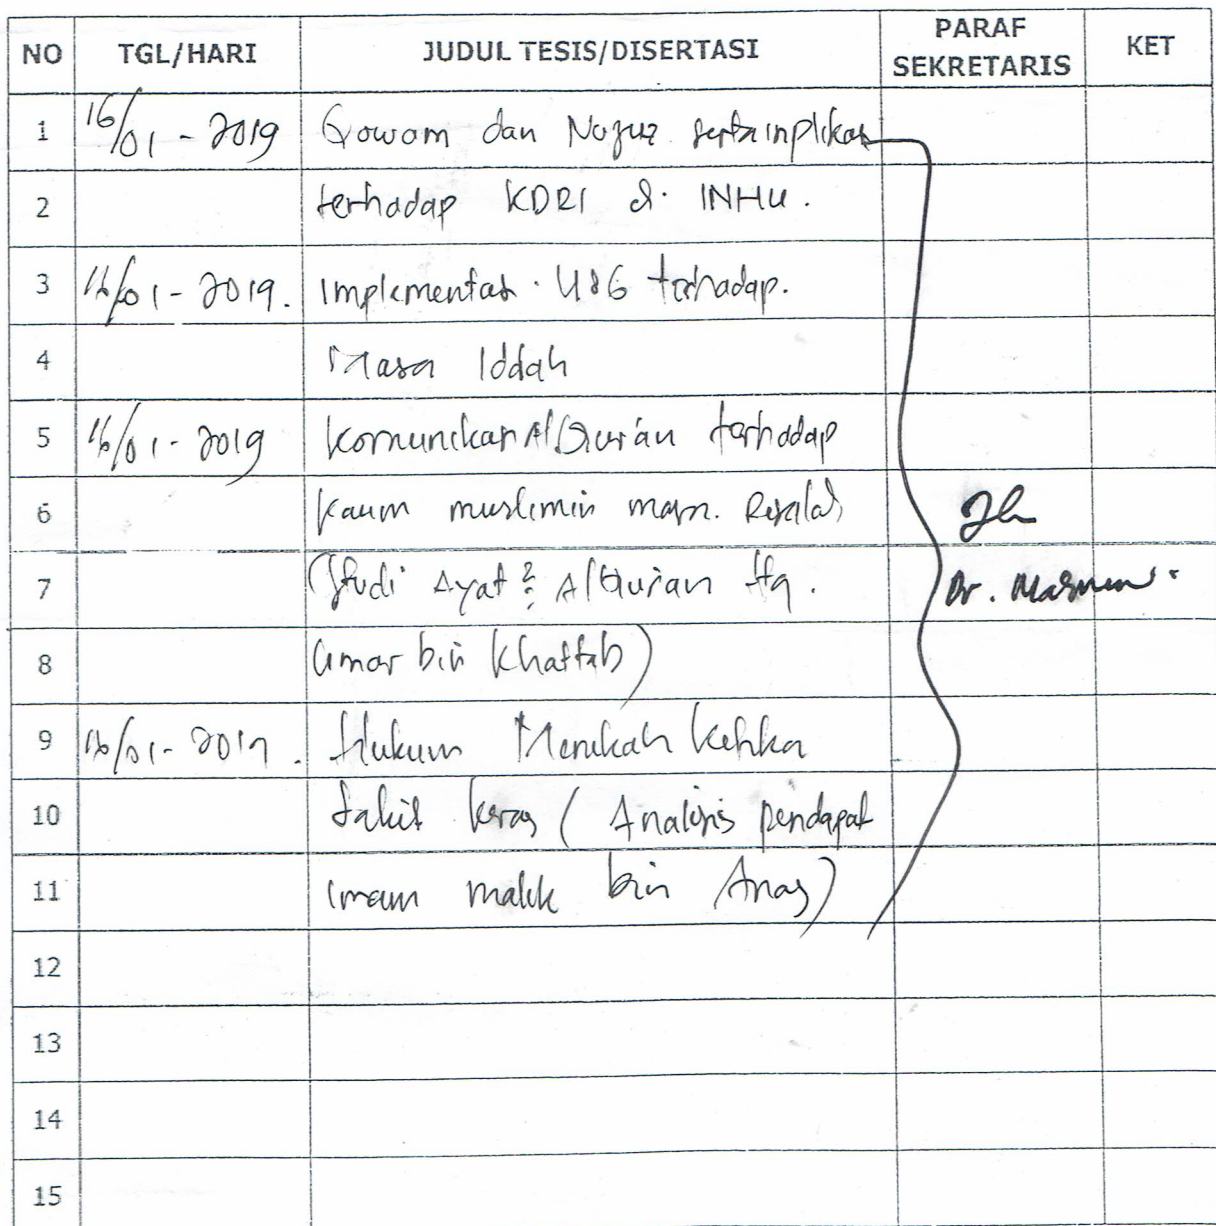 NO TGL/HARI JUDUL TESIS/DISERTASI PARAF SEKRETARIS KET
1 16/01 - 2019 Qowam dan Nuzuz serta implikasi
2 terhadap KDRT di INHU.
3 16/01 - 2019. Implementasi USG terhadap.
4 Masa Iddah
5 16/01 - 2019 Komunikasi Al Qur'an terhadap
6 Kaum muslimin masa Risalah
7 (Studi Ayat2 Al Quran ttg. Dr. Masrun
8 Umar bin Khattab)
9 16/01 - 2019. Hukum Menikah Ketika
10 Sakit keras (Analisis pendapat
11 Imam malik bin Anas)
12
13
14
15